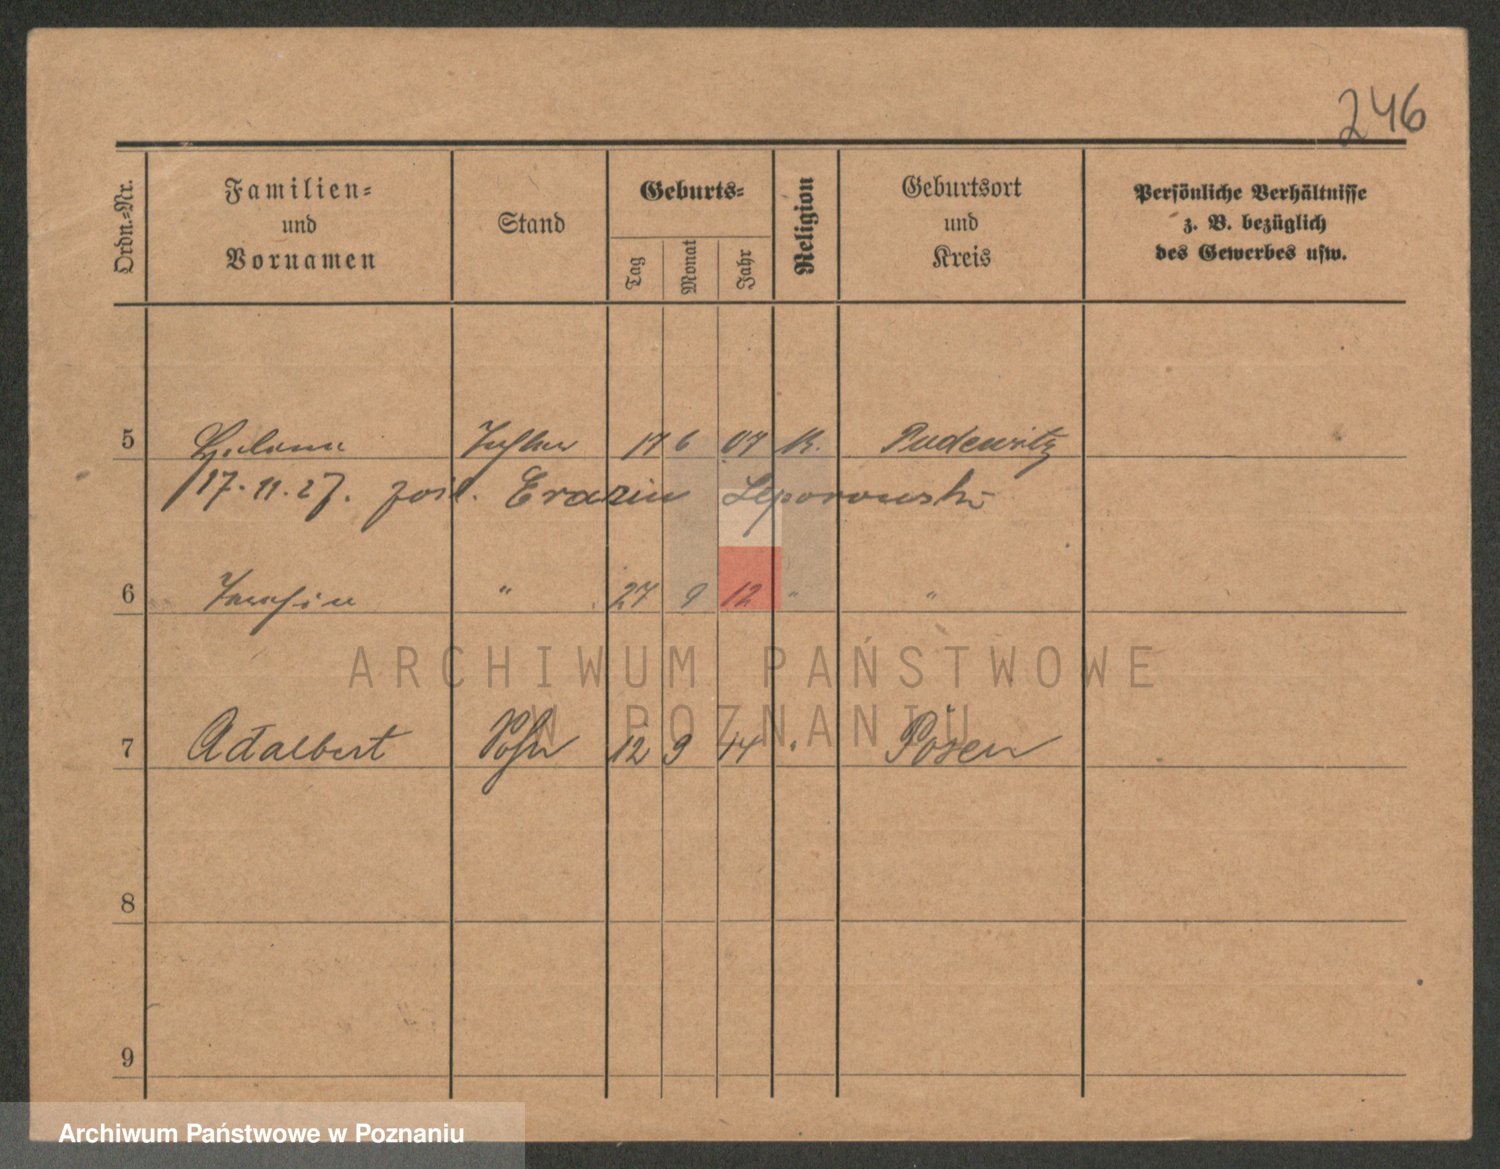 246
Ordn.-Nr.
Familien-
und
Vornamen
Stand
Geburts-
Tag
Monat
Jahr
Religion
Geburtsort
und
Kreis
Persönliche Verhältnisse
z. B. bezüglich
des Gewerbes usw.
5 Helena Tochter 17 6 07 K. Pudewitz
17.11.27. Erazim Leporowski
6 " 27 9 12 " "
ARCHIWUM PAŃSTWOWE
W POZNANIU
7 Adalbert Sohn 12 9 14 " Posen
8
9
Archiwum Państwowe w Poznaniu